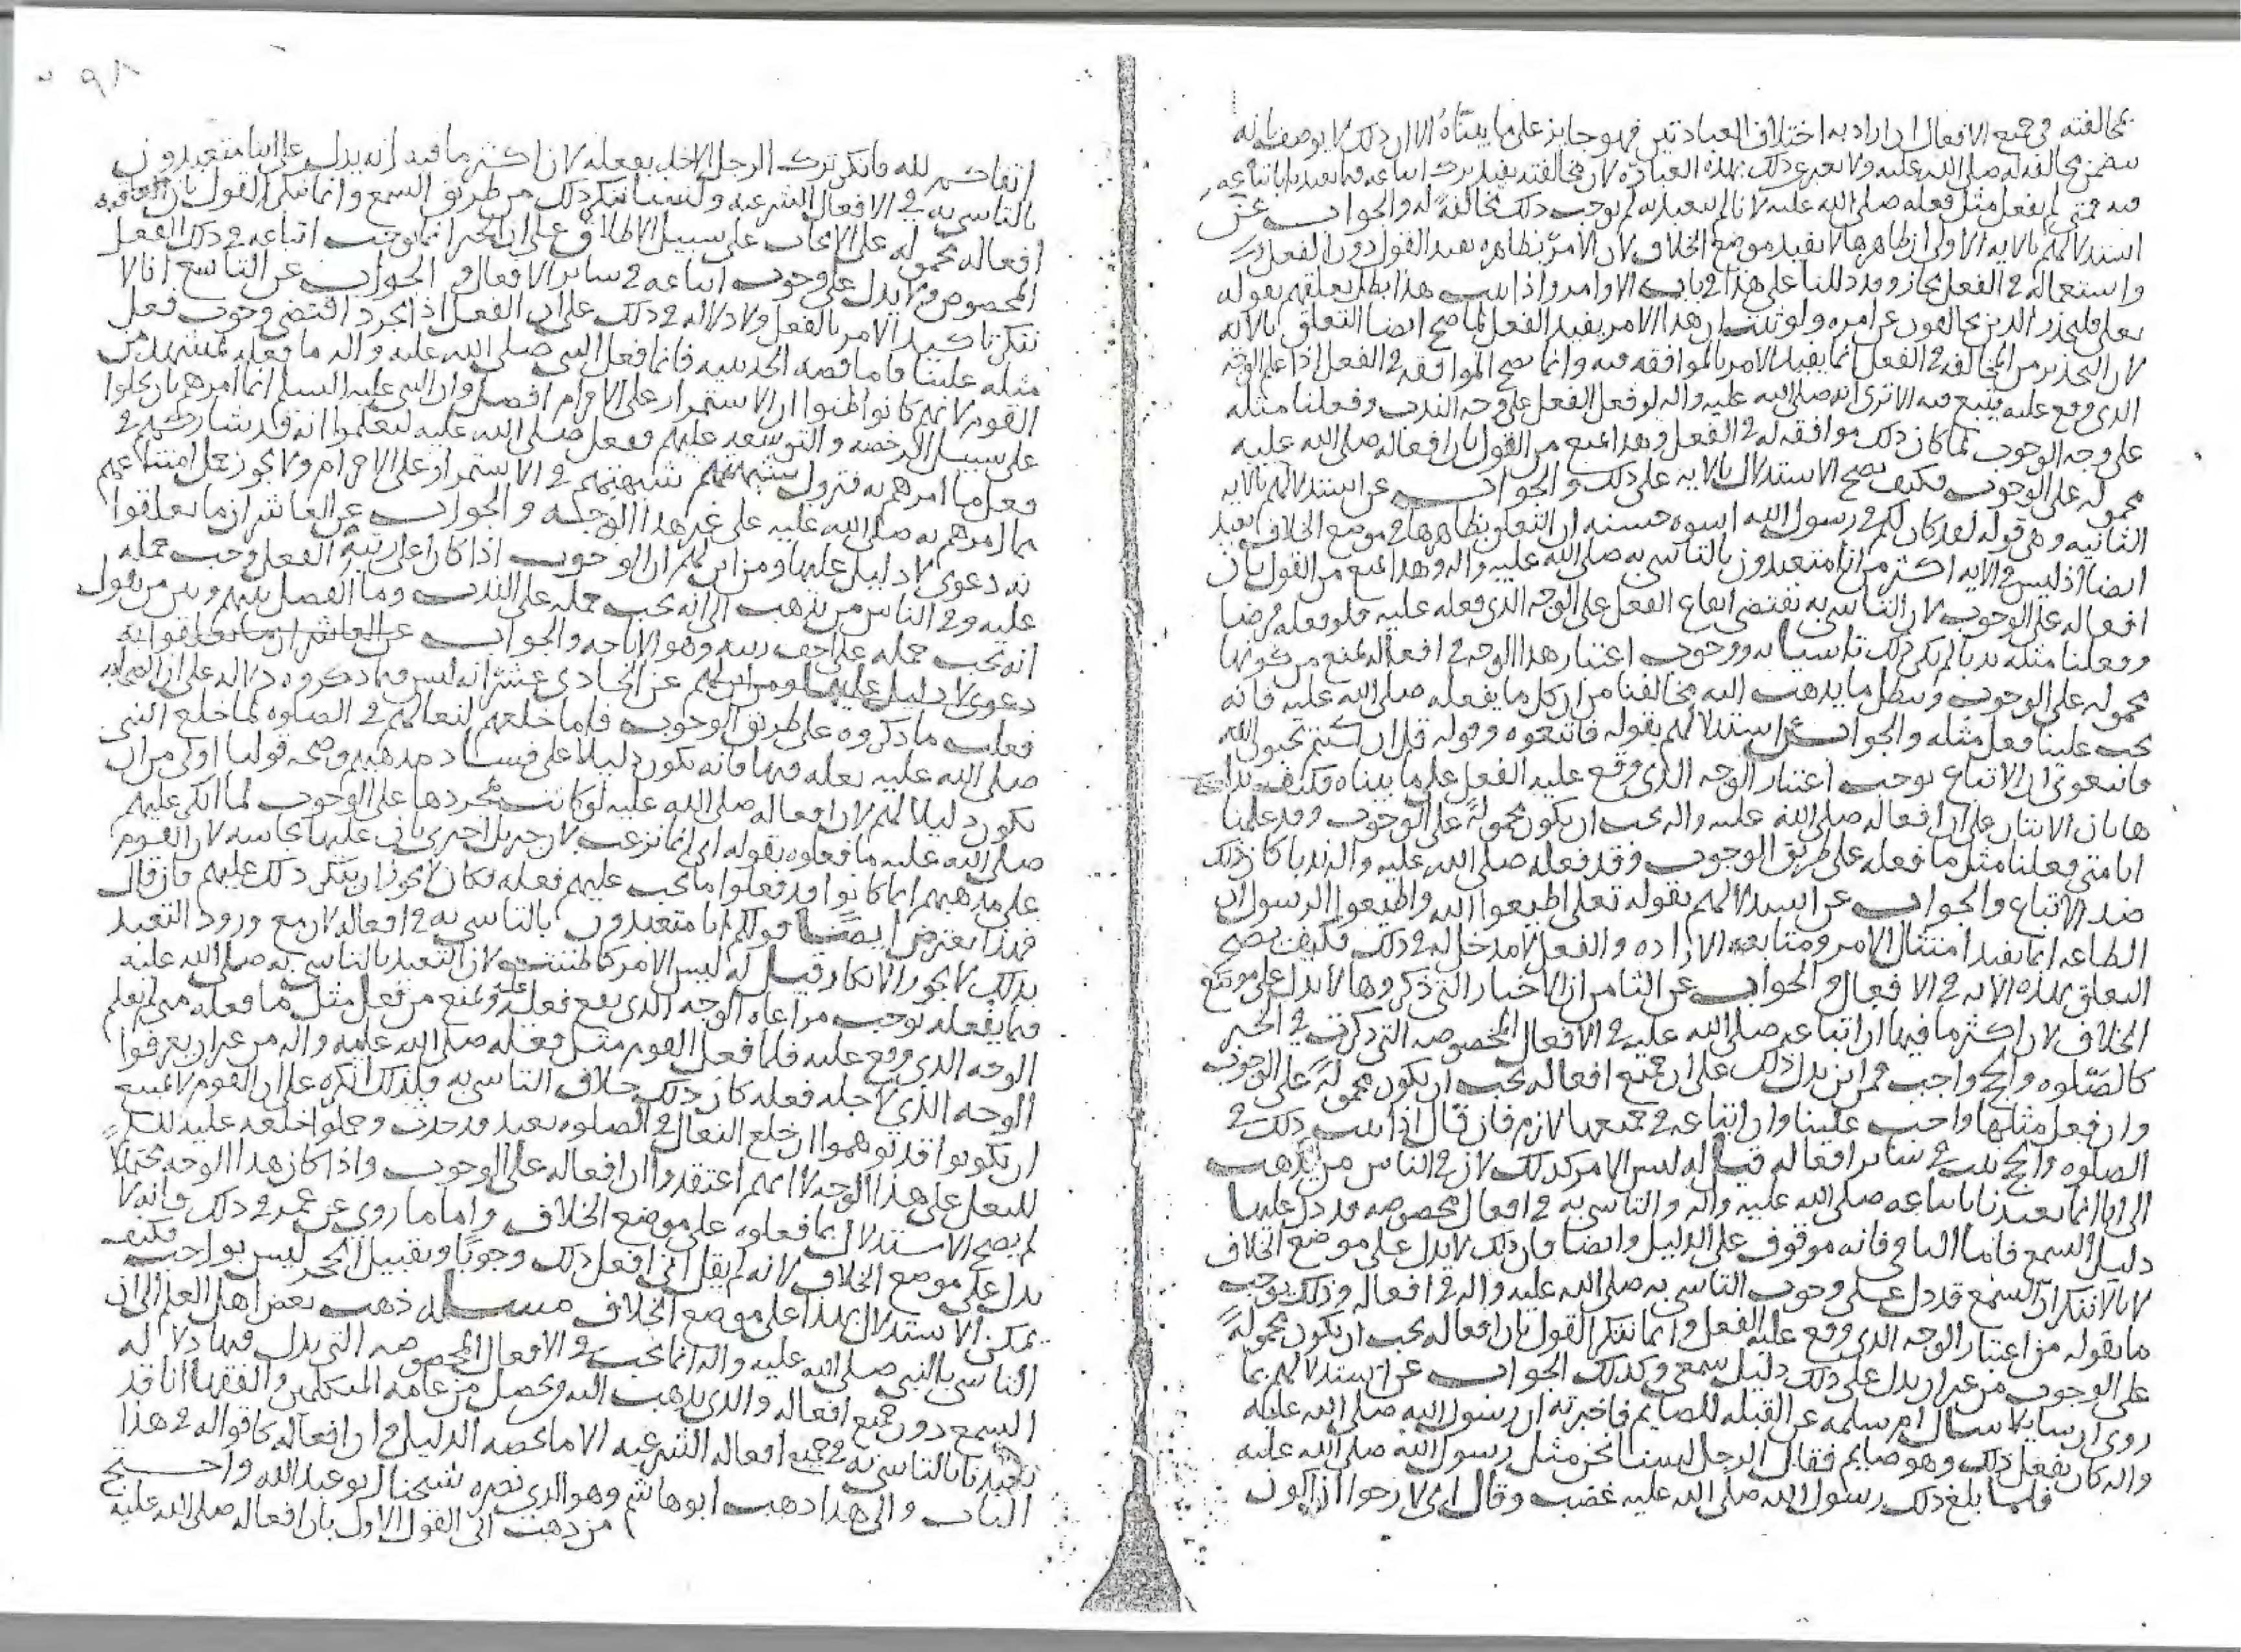 بمخالفته في جميع الافعال ان اراد به اختلاف العبادتين فهو جايز على ما بيناه الا ان ذلك لا يوصف بانه
مخالفه له صلى الله عليه ولا يعبر عن ذلك بهذه العباره لان مخالفته يفيد ترك اتباعه فيما تعبدنا باتباعه
فيه فمتى لم يفعل مثل فعله صلى الله عليه لانا لم نتعبد به لم يوجب ذلك مخالفة له والجواب عن
استدلالهم بالايه الاولى ان ظاهرها لا يفيد موضع الخلاف لان الامر بظاهره يفيد القول دون الفعل
واستعماله في الفعل مجاز وقد دللنا على هذا في باب الاوامر واذا ثبت هذا بطل تعلقهم بقوله
تعلى فليحذر الذين يخالفون عن امره ولو ثبت ان هذا الامر يفيد الفعل لما صح ايضا التعلق بالايه
لان التحذير من المخالفه في الفعل انما يفيد الامر بالموافقه فيه وانما تصح الموافقه في الفعل اذا علم الوجه
الذي وقع عليه فيتبع فيه الا ترى انه صلى الله عليه واله لو فعل الفعل على وجه الندب وفعلنا مثله
على وجه الوجوب لما كان ذلك موافقه له في الفعل وهذا يمنع من القول بان افعاله صلى الله عليه
محموله على الوجوب فكيف يصح الاستدلال بالايه على ذلك والجواب عن استدلالهم بالايه
الثانيه وهي قوله لقد كان لكم في رسول الله اسوه حسنه ان التعلق بظاهرها في موضع الخلاف بعيد
ايضا اذ ليس في الايه اكثر من انا متعبدون بالتاسي به صلى الله عليه واله وهذا يمنع من القول بان
افعاله على الوجوب لان التاسي به يقتضي ايقاع الفعل على الوجه الذي فعله عليه فلو فعله فرضا
وفعلنا مثله ندبا لم يكن ذلك تاسيا به ووجوب اعتبار هذا الوجه في افعاله يمنع من كونها
محموله على الوجوب ويبطل ما يذهب اليه مخالفنا من ان كل ما يفعله صلى الله عليه فانه
يجب علينا فعل مثله والجواب عن استدلالهم بقوله فاتبعوه وقوله قل ان كنتم تحبون الله
فاتبعوني ان الاتباع يوجب اعتبار الوجه الذي وقع عليه الفعل على ما بيناه فكيف يدل
هاتان الايتان على ان افعاله صلى الله عليه واله يجب ان يكون محمولة على الوجوب وقد علمنا
انا متى فعلنا مثل ما فعله على طريق الوجوب وقد فعله صلى الله عليه واله ندبا كان ذلك
ضد الاتباع والجواب عن استدلالهم بقوله تعلى اطيعوا الله واطيعوا الرسول ان
الطاعه انما يفيد امتثال الامر ومتابعه الاراده والفعل لا مدخل له في ذلك فكيف يصح
التعلق بهذه الايه في الافعال والجواب عن الثامن ان الاخبار التي ذكروها لا يدل على موضع
الخلاف لان اكثر ما فيها ان اتباعه صلى الله عليه في الافعال المخصوصه التي ذكرت في الخبر
كالصلوه والحج واجب فمن اين يدل ذلك على ان جميع افعاله يجب ان يكون محمولة على الوجوب
وان فعل مثلها واجب علينا وان اتباعه في جميعها لازم فان قال اذا ثبت ذلك في
الصلوه والحج ثبت في سائر افعاله قيل له ليس الامر كذلك لان في الناس من يذهب
الى انا انما تعبدنا باتباعه صلى الله عليه واله والتاسي به في افعال مخصوصه قد دل عليها
دليل السمع فاما الباقي فانه موقوف على الدليل وايضا فان ذلك لا يدل على موضع الخلاف
لانا لا ننكر ان السمع قد دل على وجوب التاسي به صلى الله عليه واله في افعاله وذلك يوجب
ما نقوله من اعتبار الوجه الذي وقع عليه الفعل وانما ننكر القول بان افعاله يجب ان يكون محمولة
على الوجوب من غير ان يدل على ذلك دليل سمعي وكذلك الجواب عن استدلالهم بما
روي ان سايلا سال ام سلمه عن القبله للصايم فاخبرته ان رسول الله صلى الله عليه
واله كان يفعل ذلك وهو صايم فقال الرجل لسنا نحن مثل رسول الله صلى الله عليه
فلما بلغ ذلك رسول الله صلى الله عليه غضب وقال اني لا رجوا ان اكون
٩٨
اتقاكم لله فانكر ترك الرجل الاخذ بفعله لان اكثر ما فيه انه يدل على انا متعبدون
بالتاسي به في الافعال الشرعيه ولسنا ننكر ذلك من طريق السمع وانما ننكر القول بان
افعاله محموله على الايجاب على سبيل الاطلاق على ان الخبر انما يوجب اتباعه في ذلك الفعل
المخصوص ولا يدل على وجوب اتباعه في سائر الافعال والجواب عن التاسع انا لا
ننكر تاكيد الامر بالفعل ولا دلاله في ذلك على ان الفعل اذا تجرد اقتضى وجوب فعل
مثله علينا فاما قصه الحديبيه فانما فعل النبي صلى الله عليه واله ما فعله بمشهد من
القوم لانهم كانوا ظنوا ان الاستمرار على الاحرام افضل وان النبي عليه السلم انما امرهم بان يحلوا
على سبيل الرخصه والتوسعه عليهم ففعل صلى الله عليه ليعلموا انه قد شاركهم في
فعل ما امرهم به فتزول شبهتهم في الاستمرار على الاحرام ولا يجوز
بما امرهم به صلى الله عليه على غير هذا الوجه والجواب عن العاشر ان ما تعلقوا
به دعوى لا دليل عليها ومن اين لهم ان الوجوب اذا كان اعلى رتبة الفعل وجب حمله
عليه وفي الناس من يذهب الى انه يجب حمله على الندب وما الفصل بينهم وبين من يقول
انه يجب حمله على اخف رتبه وهو الاباحه والجواب عن العاشر ان ما تعلقوا به
دعوى لا دليل عليها ومن اين لهم عن الحادي عشر انه ليس فيما ذكروه دلاله على ان الصحابه
فعلت ما ذكروه على طريق الوجوب فاما خلعهم لنعالهم في الصلوه لما خلع النبي
صلى الله عليه نعله فيها فانه بكون دليلا على فساد مذهبهم وصحه قولنا اولى من ان
يكون دليلا لهم لان افعاله صلى الله عليه لو كانت بمجردها على الوجوب لما انكر عليهم
صلى الله عليه ما فعلوه بقوله اني انما نزعت لان جبريل اخبرني بان عليها نجاسه لان القوم
على مذهبهم انما كانوا قد فعلوا ما يجب عليهم فعله فكان لا يجوز ان ينكر ذلك عليهم فان قال
فهذا يعترض ايضا قولكم انا متعبدون بالتاسي به في افعاله لان مع ورود التعبد
بذلك لا يجوز الانكار قيل له ليس الامر كما ظننت لان التعبد بالتاسي به صلى الله عليه
فيما يفعله يوجب مراعاه الوجه الذي يقع فعله عليه ويمنع من فعل مثل ما فعله متى لم يعلم
الوجه الذي وقع عليه فلما فعل القوم مثل فعله صلى الله عليه واله من غير ان يعرفوا
الوجه الذي لاجله فعله كان ذلك خلاف التاسي به فلذلك انكره على ان القوم لا يمتنع
ان يكونوا قد توهموا ان خلع النعال في الصلوه تعبد قد حدث وحملوا خلعه عليه
للنعل على هذا الوجه لا انهم اعتقدوا ان افعاله على الوجوب واذا كان هذا الوجه محتملا
لم يصح الاستدلال بما فعلوه على موضع الخلاف واما ما روي عن عمر في ذلك فانه لا
يدل على موضع الخلاف لانه لم يقل اني افعل ذلك وجوبا وتقبيل الحجر ليس بواجب فكيف
يمكن الاستدلال بهذا على موضع الخلاف مسله ذهب بعض اهل العلم الى ان
التاسي بالنبي صلى الله عليه واله انما يجب في الافعال المخصوصه التي يدل فيها دلاله
السمع دون جميع افعاله والذي يذهب اليه ويحصل من عامه المتكلمين والفقها انا قد
تعبدنا بالتاسي به في جميع افعاله الشرعيه الا ما يخصه الدليل وان افعاله كاقواله في هذا
الباب والى هذا ذهب ابو هاشم وهو الذي نصره شيخنا ابو عبد الله واحتج
من ذهب الى القول الاول بان افعاله صلى الله عليه